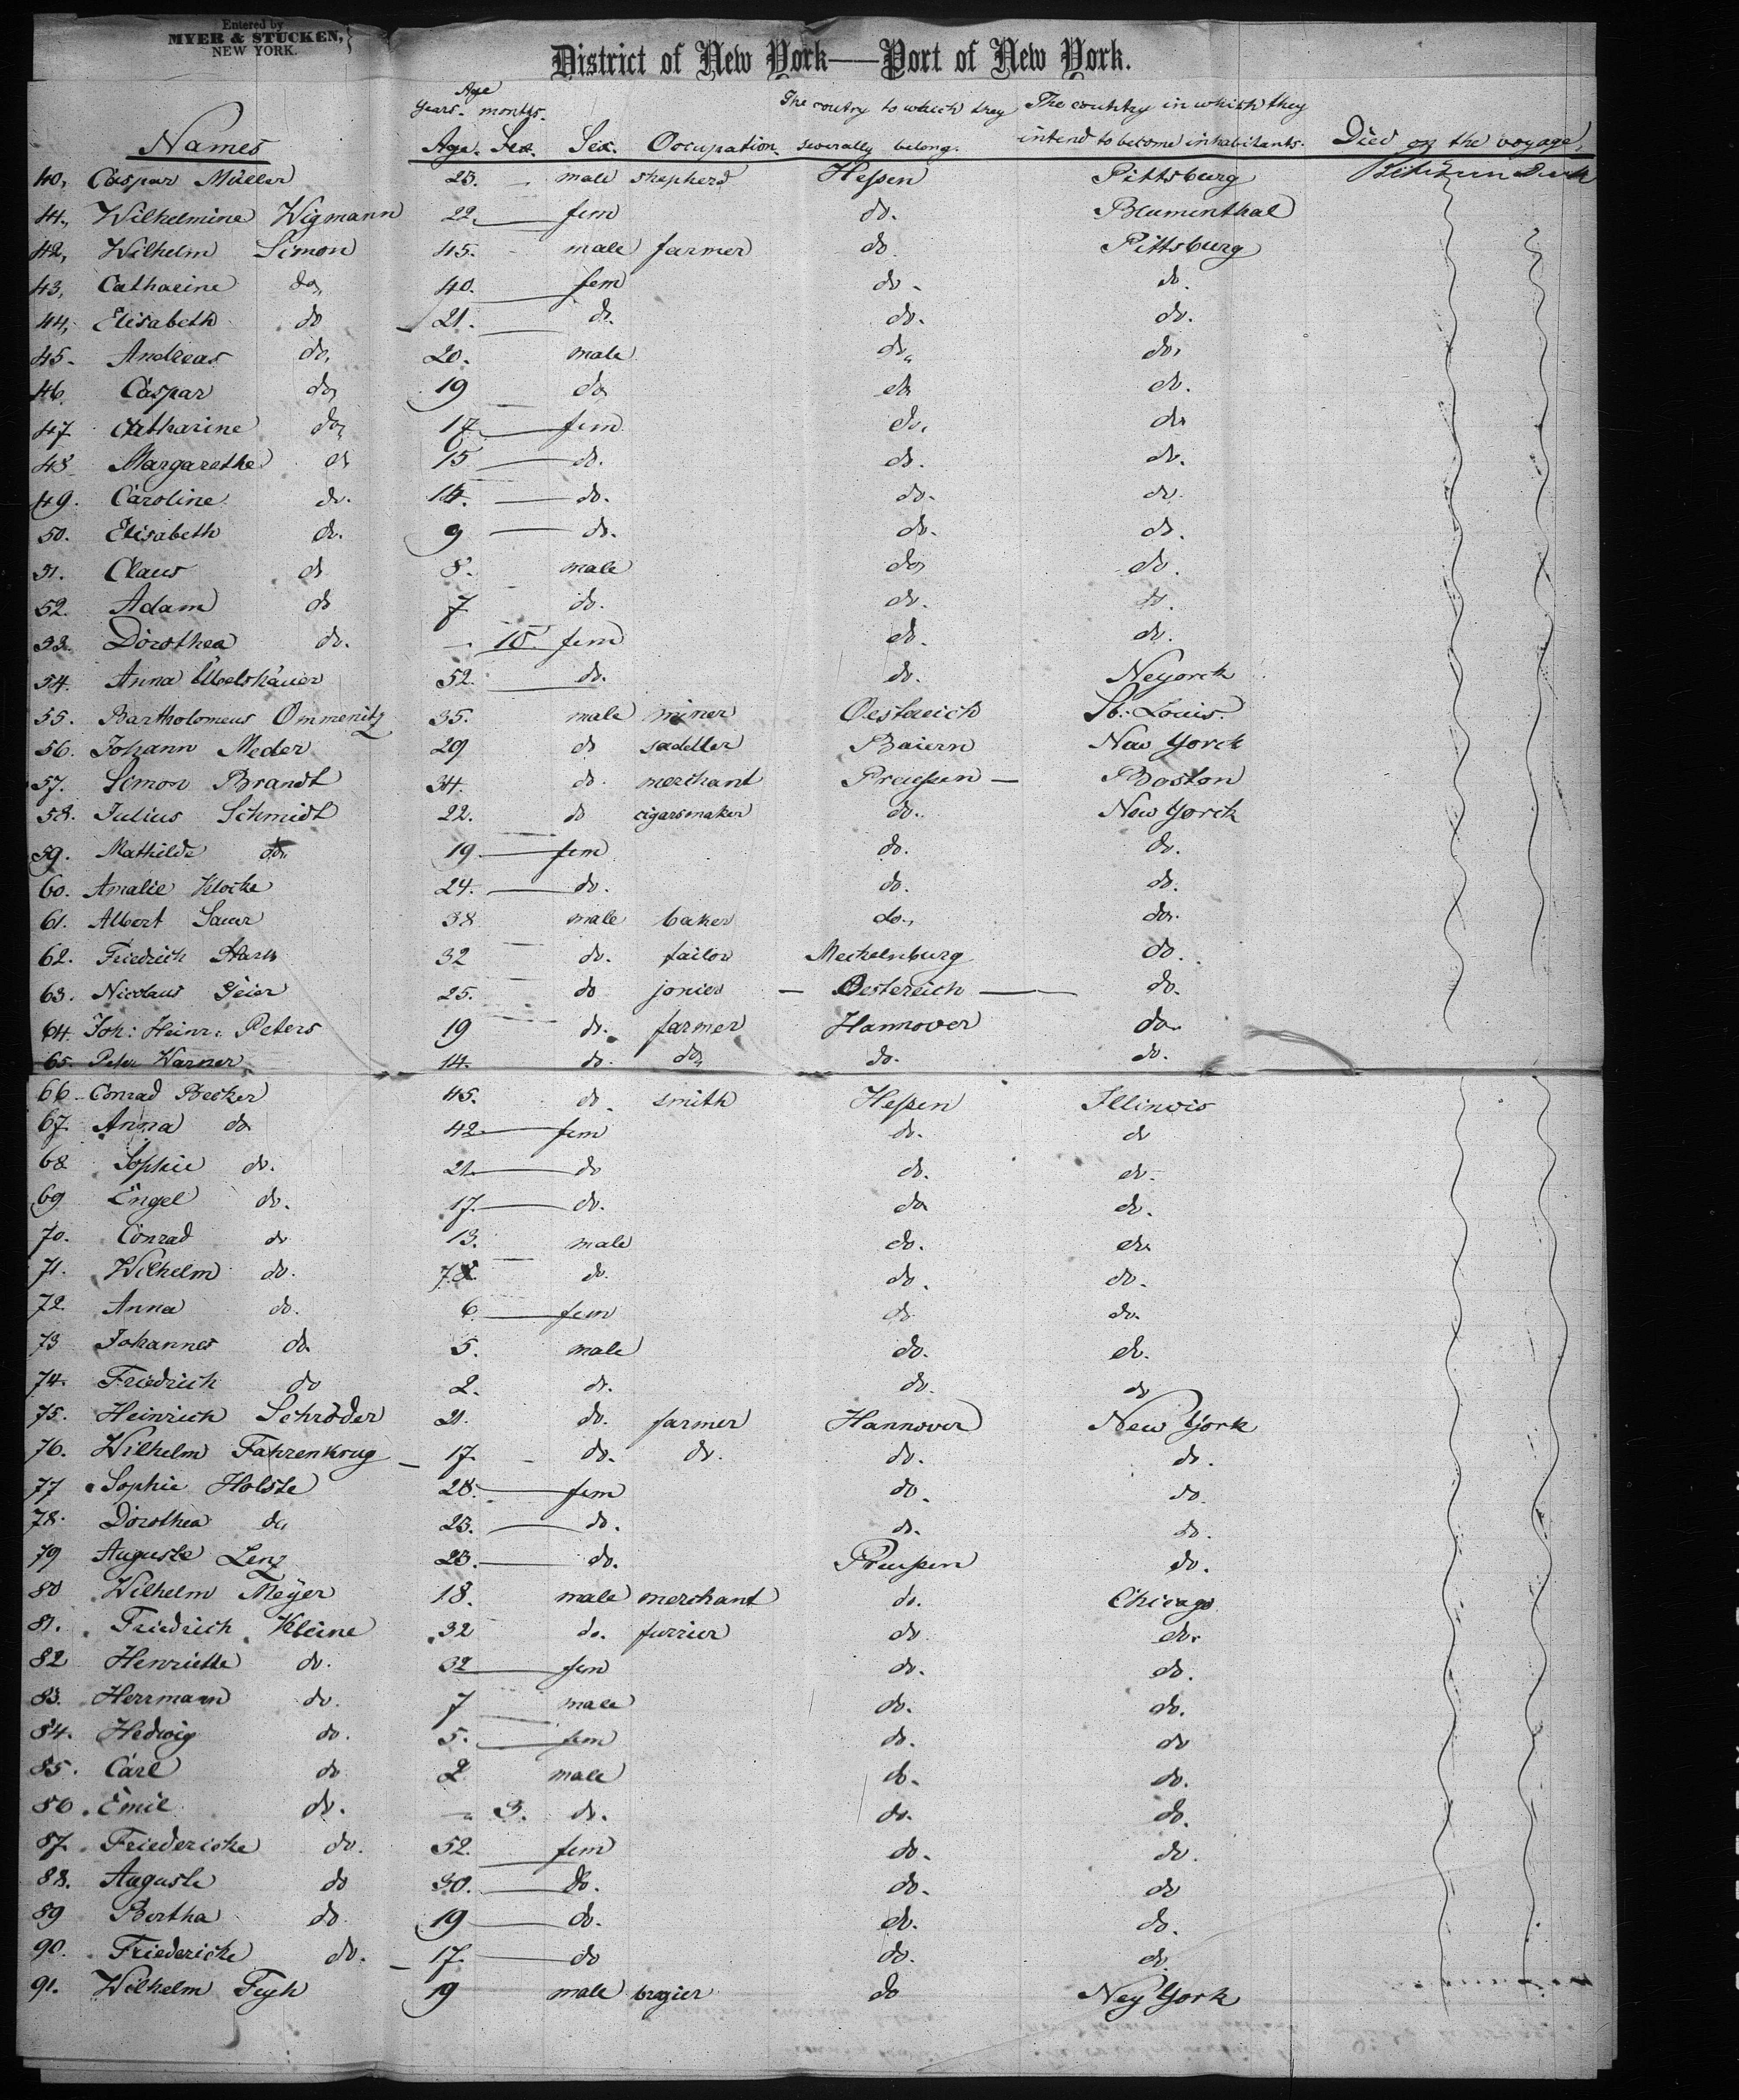 Entered by
MYER & STUCKEN,
NEW YORK.
District of New York—Port of New York.
Age
Years. months. The coutry to which they The country in which they
Names Age. Sex. Sex. Occupation. severally belong. intend to become inhabitants. Died on the voyage.
40, Caspar Müller 23. male shepherd Heßen Pittsburg
41., Wilhelmine Wigmann 22. fem do. Blumenthal
42, Wilhelm Simon 45. male farmer do Pittsburg
43, Catharine do, 40. fem do. do.
44, Elisabeth do 21. do. do. do.
45. Andreas do, 20. male do, do,
46. Caspar do, 19 do do do.
47 Catharine do, 17 fem do, do
48 Margarethe do 15 do. do. do.
49. Caroline do. 14. do. do. do.
50. Elisabeth do. 9 do. do. do.
51. Claus do 8. male do, do.
52. Adam do 7 do. do. do.
53. Dorothea do. 10. fem do. do.
54. Anna 52. do. do. Neyorck
55. Bartholomeus Ommenitz 35. male miner Oestreich St. Louis.
56. Johann Meder 29 do sadeller Baiern New Yorck
57. Simon Brandt 34. do. merchant Preußen — Boston
58. Julius Schmidt 22. do cigarsmaker do. New Yorck
59. Mathilde do. 19. fem do. do.
60. Amalie Klocke 24. do. do. do.
61. Albert Saur 38 male baker do., do.
62. Friedrich 32 do. tailor Mecklenburg do.
63. Nicolaus Geier 25. do jonier — Oestereich — do.
64. Joh: Heinr: Peters 19 do. farmer Hannover do.
65. Peter Warner 14. do. do, do. do.
66. Conrad Becker 45. do. smith Heßen Illinois
67. Anna do 42. fem do. do
68 Sophie do. 21. do do. do.
69 Engel do. 17. do. do do.
70. Conrad do 13. male do. do.
71. Wilhelm do. 7. do. do. do.
72. Anna do. 6. fem do do.
73 Johannes do. 5. male do. do.
74. Friedrich do 2. do. do. do
75. Heinrich Schröder 21. do. farmer Hannover New York
76. Wilhelm Fahrenkrug 17. do. do. do. do.
77 Sophie Holste 28. fem do. do.
78. Dorothea do, 23. do. do. do.
79 Auguste Lenz 23. do. Preußen do.
80 Wilhelm Meÿer 18. male merchant do. Chicago
81. Friedrich Kleine 32 do. furrier do do.
82 Henriette do. 32 fem do. do.
83. Herrmann do. 7 male do. do.
84. Hedwig do. 5. fem do. do
85. Carl do 2 male do. do.
86. Emil do. 3. do. do. do.
87. Friedericke do. 52. fem do. do.
88. Auguste do 30. do. do. do
89 Bertha do 19 do. do. do.
90. Friedericke do. 17. do do. do.
91. Wilhelm 19 male do Ney York